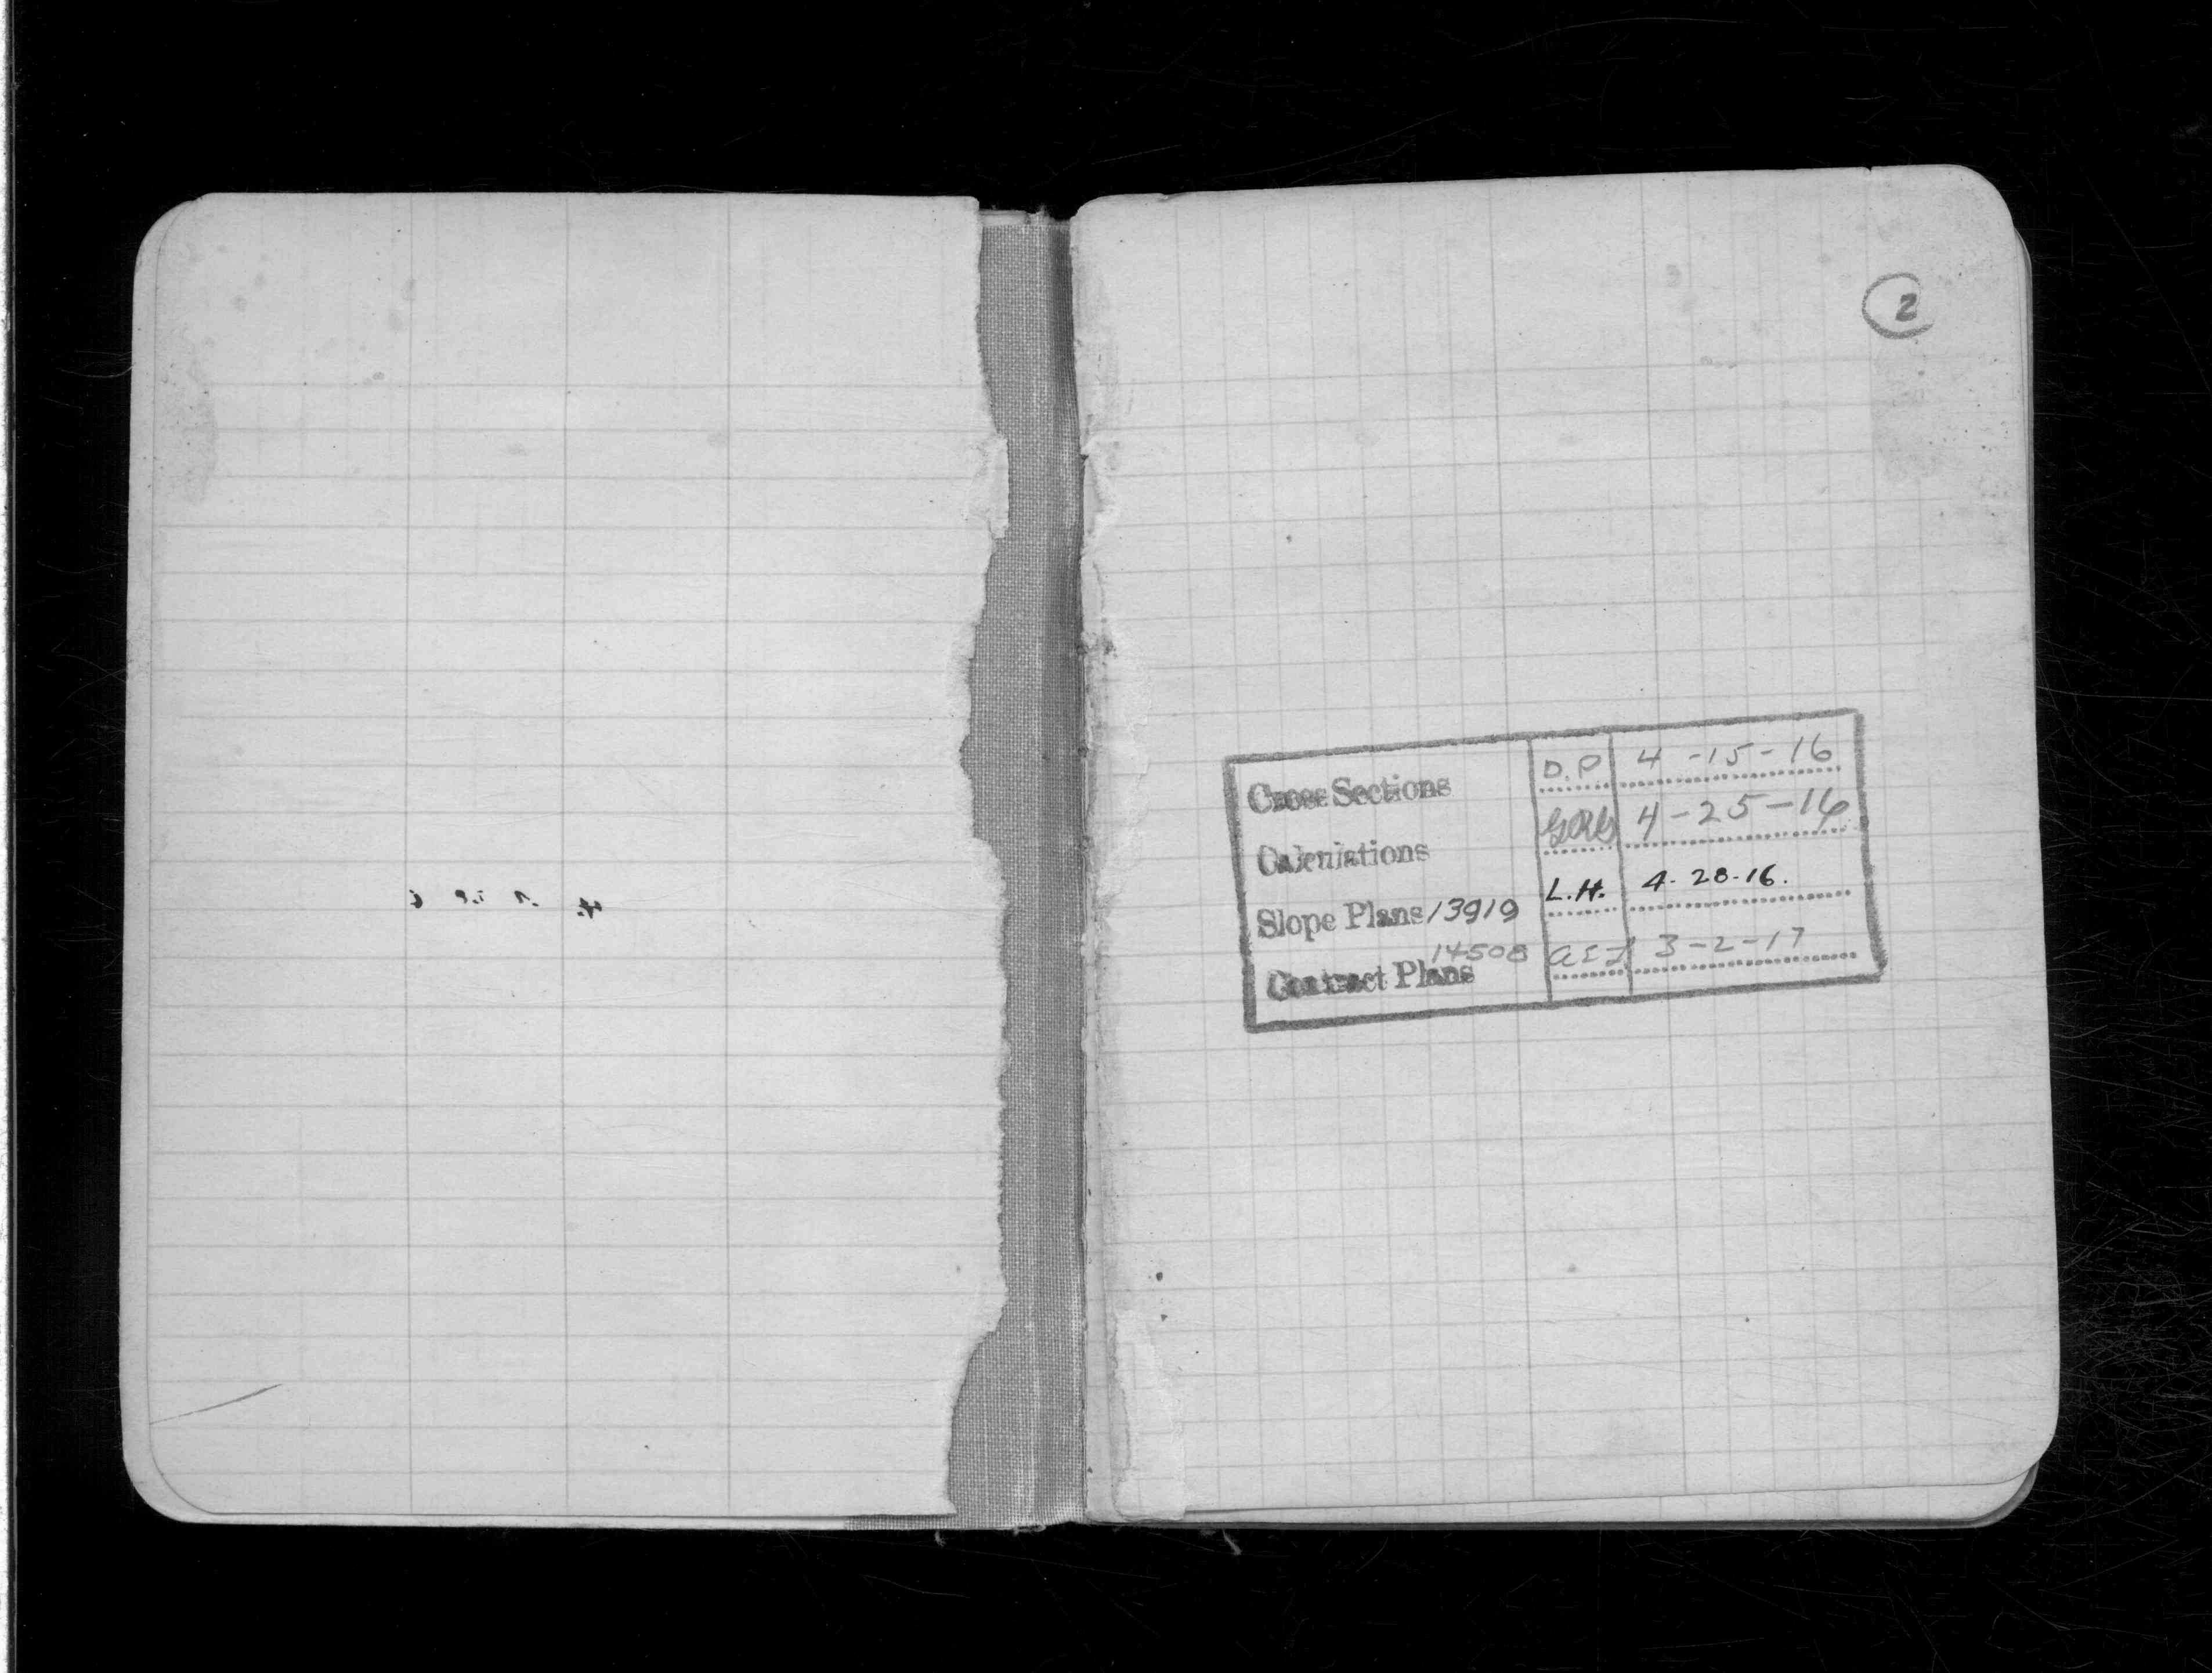 2
Cross Sections D.P. 4-15-16
Calculations 4-25-16
Slope Plans 13919 L.H. 4-28-16.
14508
Contract Plans 3-2-17